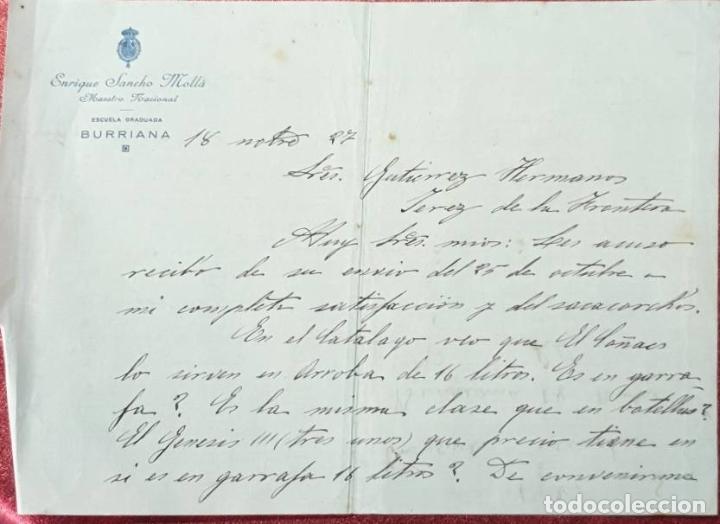 Enrique Sancho Mollá
Maestro Nacional
ESCUELA GRADUADA
BURRIANA
18 nobre 27
Sres. Gutierrez Hermanos
Jerez de la Frontera
Muy Sres. mios: Les acuso
recibo de su envio del 25 de octubre a
mi completa satisfacción y del sacacorchos.
En el Catalago veo que El
lo sirven en Arroba de 16 litros. Es en garra-
fa? Es la misma clase que en botellas?
El Genesis III (tres unos) que precio tiene en
si es en garrafa 16 litros? De convenirme
todocoleccion